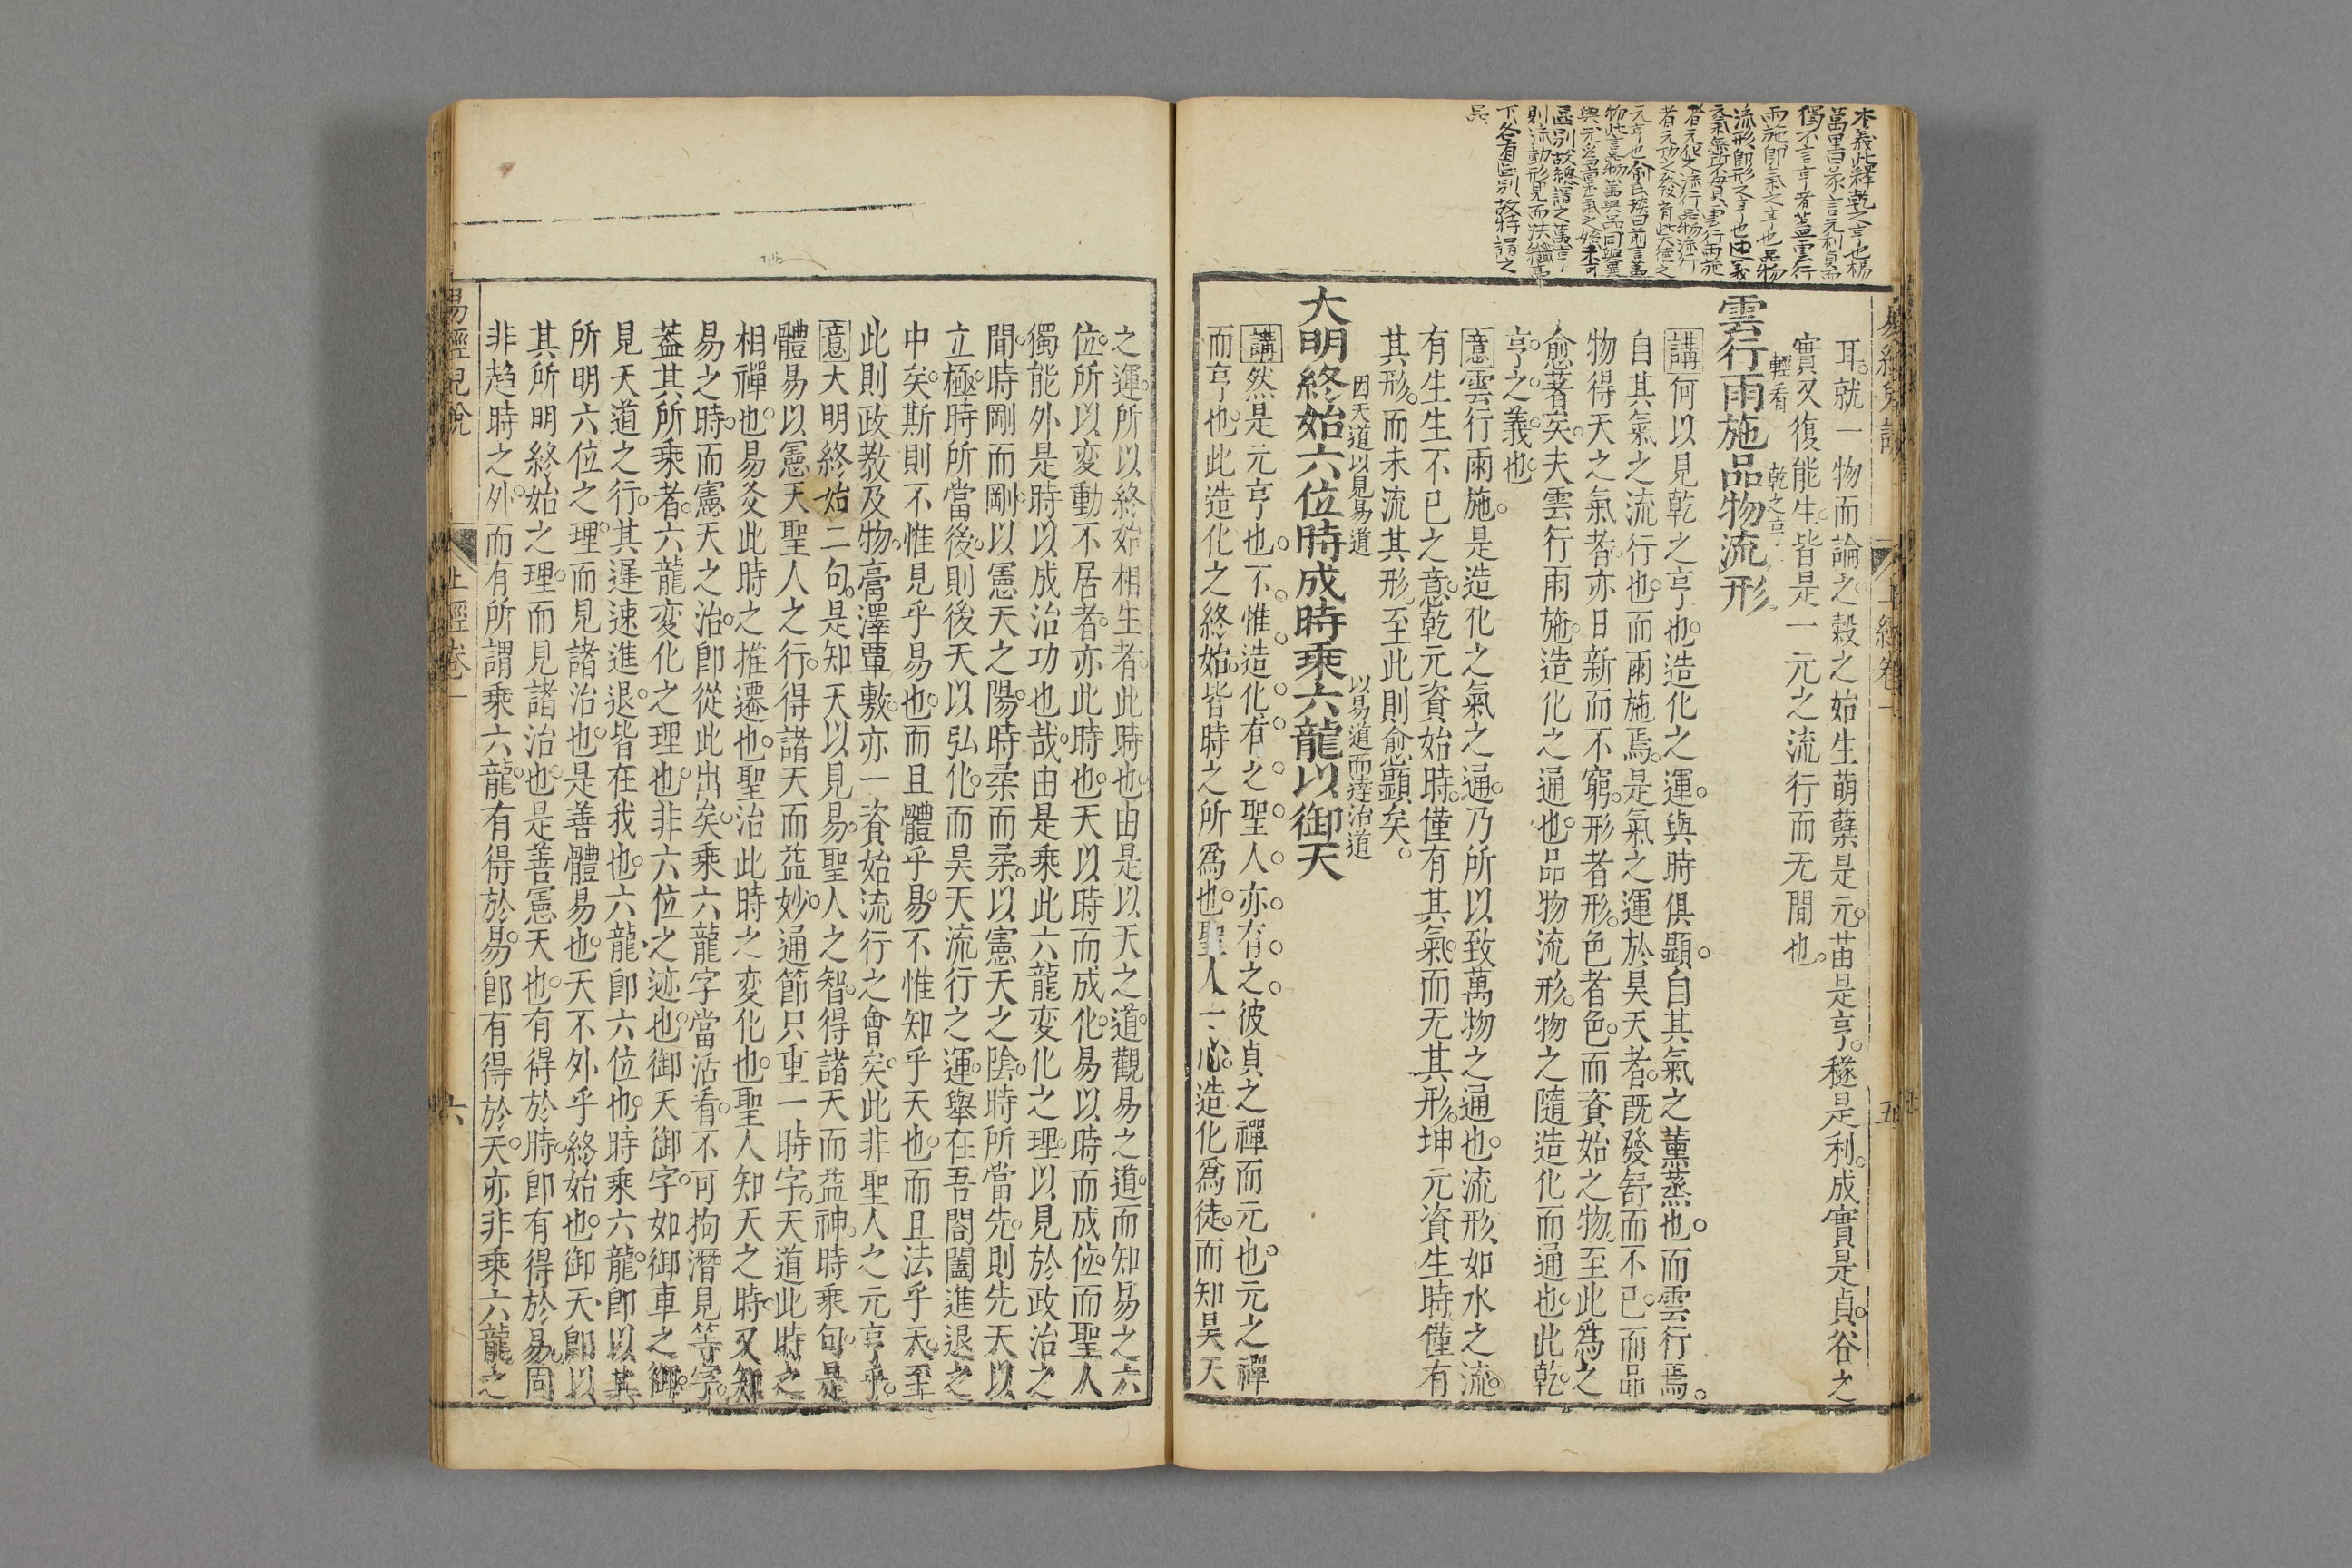 易經兒說
上經卷一
五
本義此釋乾之亨也楊
萬里曰彖言元利貞而
獨不言亨者蓋雲行
雨施即氣之亨也品物
流形即形之亨也
下各有區別故特謂之
品
耳。就一物而論之。穀之始生萌蘖是元。苗是亨。穟是利。成實是貞。谷之
實又復能生。皆是一元之流行而无間也。
輕看
乾之亨
雲行雨施品物流形
講何以見乾之亨也。造化之運。與時俱顯。自其氣之薰蒸也。而雲行焉。
自其氣之流行也。而雨施焉。是氣之運於昊天者。既發舒而不已。而品
物得天之氣者。亦日新而不窮。形者形。色者色。而資始之物。至此爲之
愈著矣。夫雲行雨施。造化之通也。品物流形。物之隨造化而通也。此乾
亨之義也
意雲行雨施。是造化之氣之通。乃所以致萬物之通也。流形、如水之流。
有生生不已之意。乾元資始時。僅有其氣。而无其形。坤元資生時僅有
其形。而未流其形。至此則愈顯矣。
因天道以見易道
以易道而達治道
大明終始六位時成時乘六龍以御天
講然是元亨也。不惟造化有之。聖人亦有之。彼貞之禪而元也。元之禪
而亨也。此造化之終始。皆時之所爲也。聖人一心。造化爲徒。而知昊天
之運。所以終始相生者。此時也。由是以天之道。觀易之道。而知易之六
位。所以変動不居者。亦此時也。天以時而成化。易以時而成位。而聖人
獨能外是時以成治功也哉。由是乘此六龍変化之理。以見於政治之
間。時剛而剛。以憲天之陽。時柔而柔。以憲天之陰。時所當先。則先天以
立極。時所當後。則後天以弘化。而昊天流行之運。舉在吾闔闢進退之
中矣。斯則不惟見乎易也。而且體乎易。不惟知乎天也。而且法乎天。至
此則政教及物。膏澤覃敷。亦一資始流行之會矣。此非聖人之元亨乎。
意大明終始二句。是知天以見易。聖人之智。得諸天而益神。時乘句。是
體易以憲天。聖人之行。得諸天而益妙。通節只重一時字。天道此時之
相禪也。易爻此時之推遷也。聖治此時之変化也。聖人知天之時。又知
易之時。而憲天之治。卽從此出矣。乘六龍字當活看。不可拘潛見等字。
蓋其所乘者。六龍変化之理也。非六位之迹也。御天御字。如御車之御。
見天道之行。其遲速進退。皆在我也。六龍、卽六位也。時乘六龍。卽以其
所明六位之理。而見諸治也。是善體易也。天不外乎終始也。御天、卽以
其所明終始之理。而見諸治也。是善憲天也。有得於時。卽有得於易。固
非趨時之外。而有所謂乘六龍。有得於易。卽有得於天。亦非乘六龍之
易經兒說
上經卷一
六